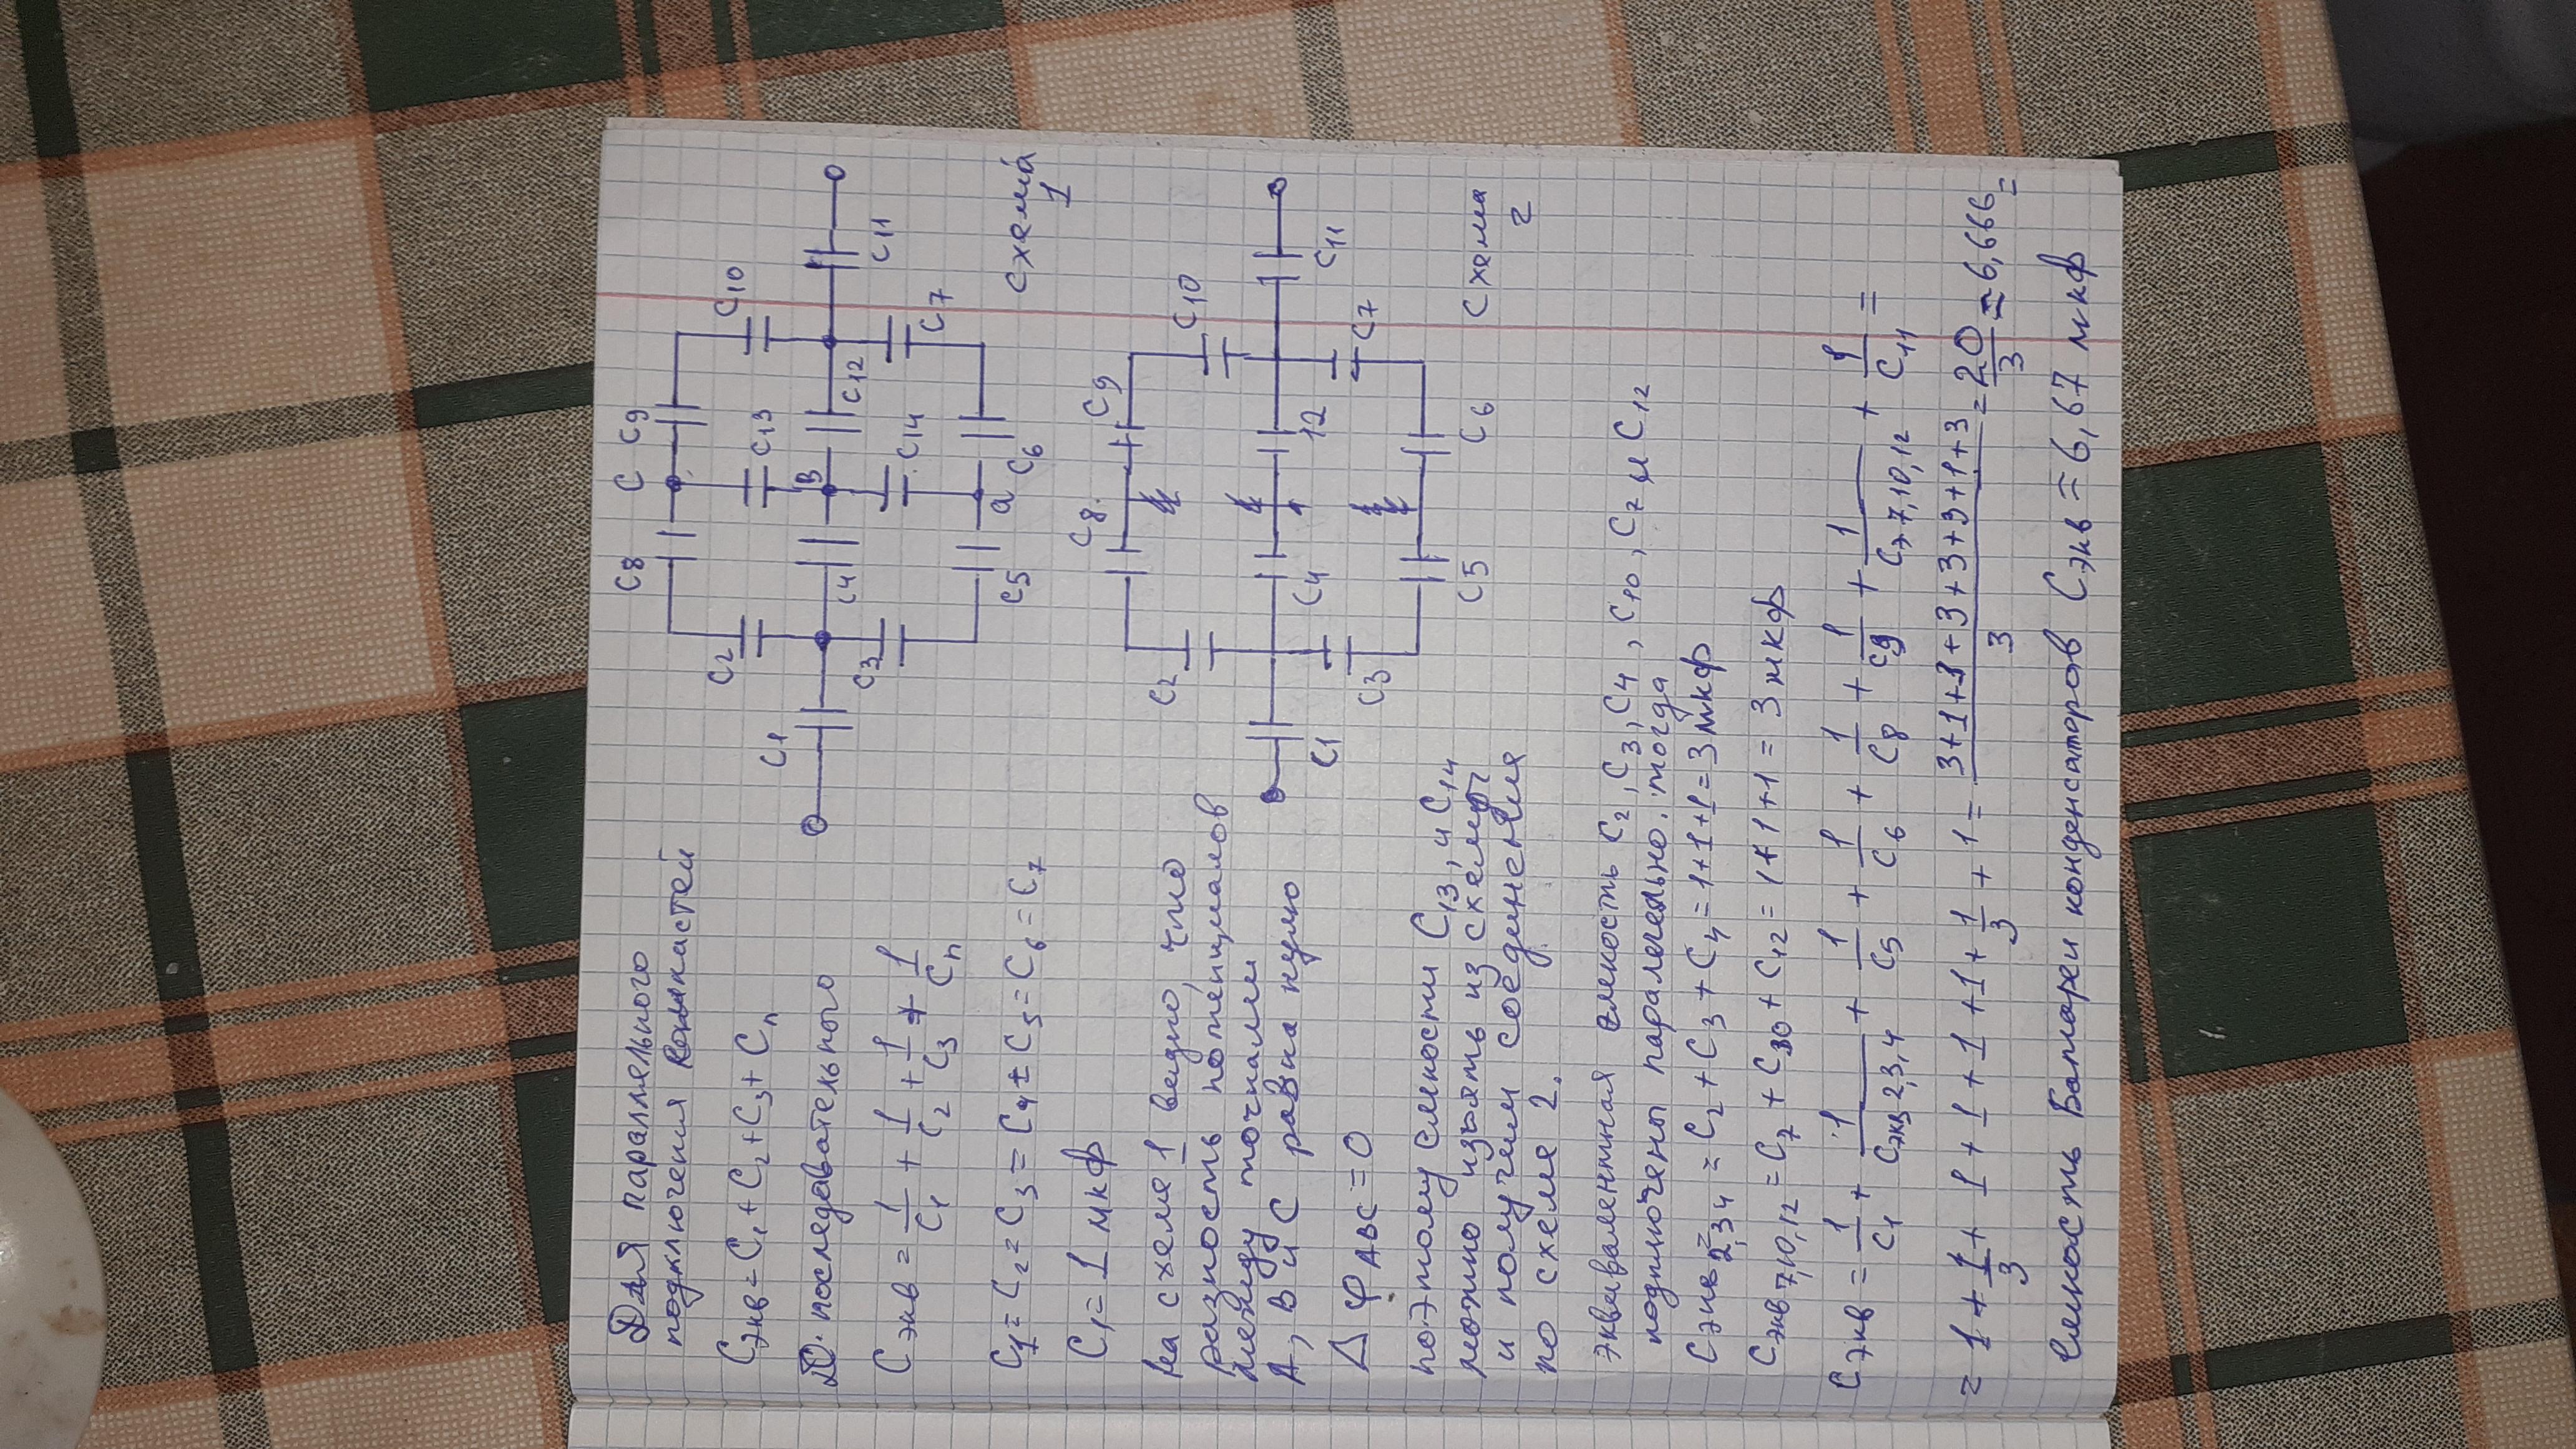 Для параллельного
подключения
Cэкв = C1 + C2 + C3 + Cn
последовательного
Cэкв = 1/C1 + 1/C2 + 1/C3 + 1/Cn
C1 = C2 = C3 = C4 = C5 = C6 = C7
C1 = 1 мкф
На схеме 1 видно, что
разность потенциалов
между точками
A, B и C равна нулю
Δ φ ABC = 0
поэтому ёмкости C13, и C14
можно изъять из схемы
и получем соединения
по схеме 2.
C1
C2
C8
C
C9
C10
C13
C4
B
C12
C11
C3
C14
C7
C5
a
C6
схема
1
C8
C9
C2
C10
C1
C4
12
C11
C3
C7
C5
C6
Схема
2
эквивалентная емкость C2, C3, C4, C10, C7 и C12
подключены паралельно. тогда
Cэкв 2,34 = C2 + C3 + C4 = 1+1+1 = 3 мкф
Cэкв 7,10,12 = C7 + C10 + C12 = 1+1+1 = 3 мкф
Cэкв = 1/C1 + 1/Cэкв 2,3,4 + 1/C5 + 1/C6 + 1/C8 + 1/C9 + 1/Cэ 7,10,12 + 1/C11 =
= 1 + 1/3 + 1 + 1 + 1 + 1 + 1/3 + 1 = 3+1+3+3+3+3+1+3/3 = 20/3 = 6,666 =
Емкость Батареи конденсаторов Cэкв = 6,67 мкф